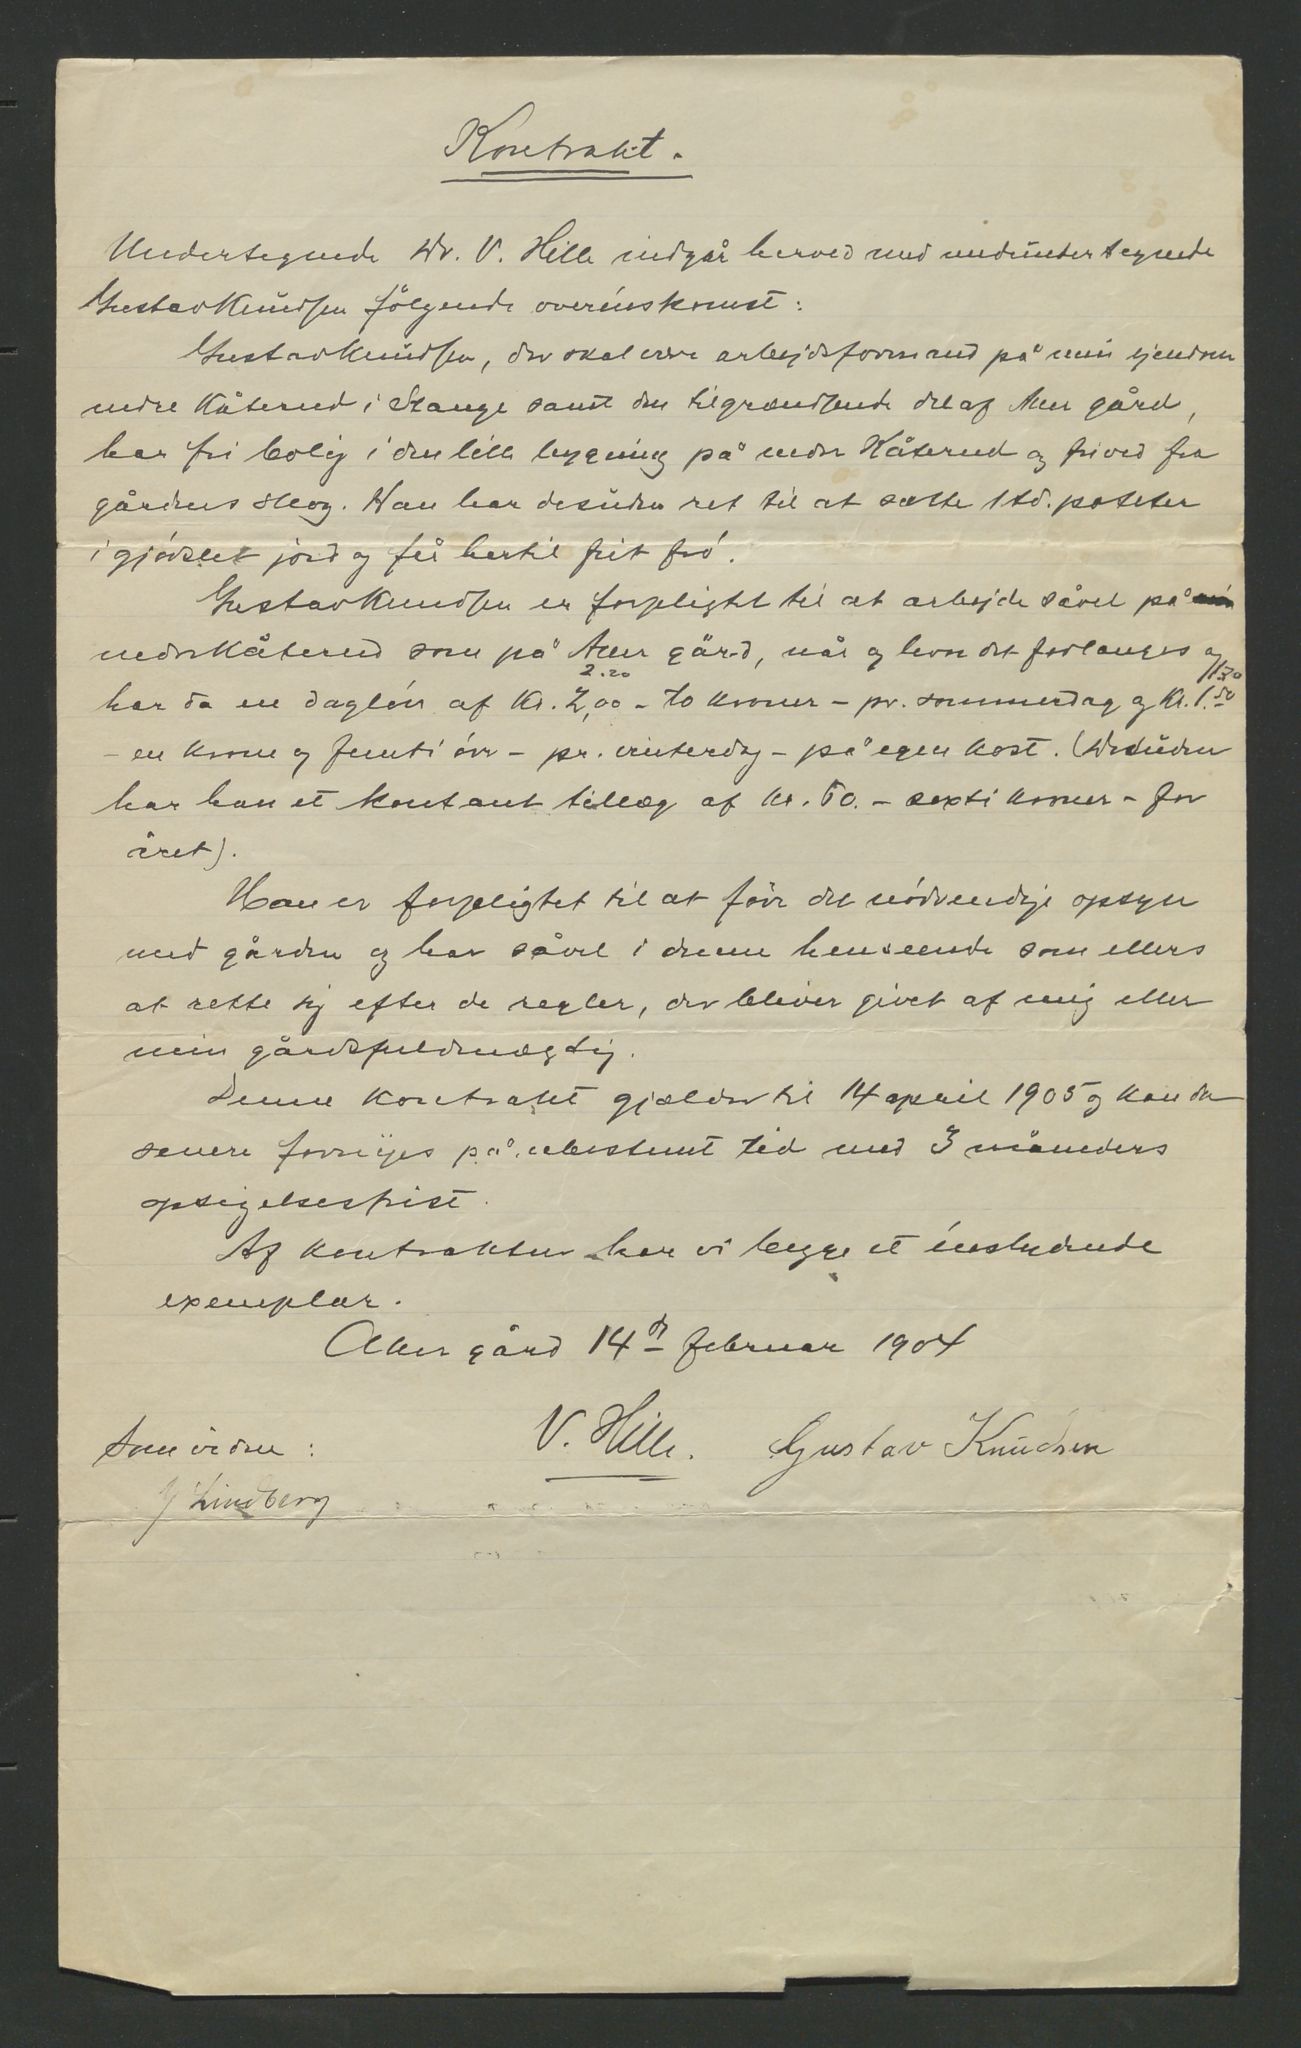 Kontrakt.
Undertegnede Dr. V. Hille indgår herved med medundertegnede
Gustav Knudsen følgende overénskomst:
Gustav Knudsen, der skal være arbejdsformand på min ejendom
nedre Kåterud i Stange samt den tilgrændsende del af Aker gård,
har fri bolig i den lille bygning på nedre Kåterud og fri ved fra
gårdens skog. Han har desuden ret til at sætte 1 td. poteter
i gjødslet jord og får hertil frit frø.
Gustav Knudsen er forpligtet til at arbejde såvel på
nedre Kåterud som på Aker gård, når og hvor det forlanges og
2.20
har da en dagløn af Kr. 2,00 - to kroner - pr. sommerdag og Kr. 1.50
- en krone og femti øre - pr. vinterdag - på egen kost. (Desuden
har han et kontant tillæg af Kr. 60. - sexti kroner - for
året).
Han er forpligtet til at føre det nødvendige opsyn
med gården og har såvel i denne henseende som ellers
at rette sig efter de regler, der bliver givet af mig eller
min gårdsfuldmægtig.
Denne kontrakt gjælder til 14 april 1905 og kan da
senere fornyes på ubestemt tid med 3 måneders
opsigelsesfrist.
Af kontrakten har vi begge et énslydende
exemplar.
Aker gård 14de februar 1904
V. Hille. Gustav Knudsen
Som vidne:
Lindberg